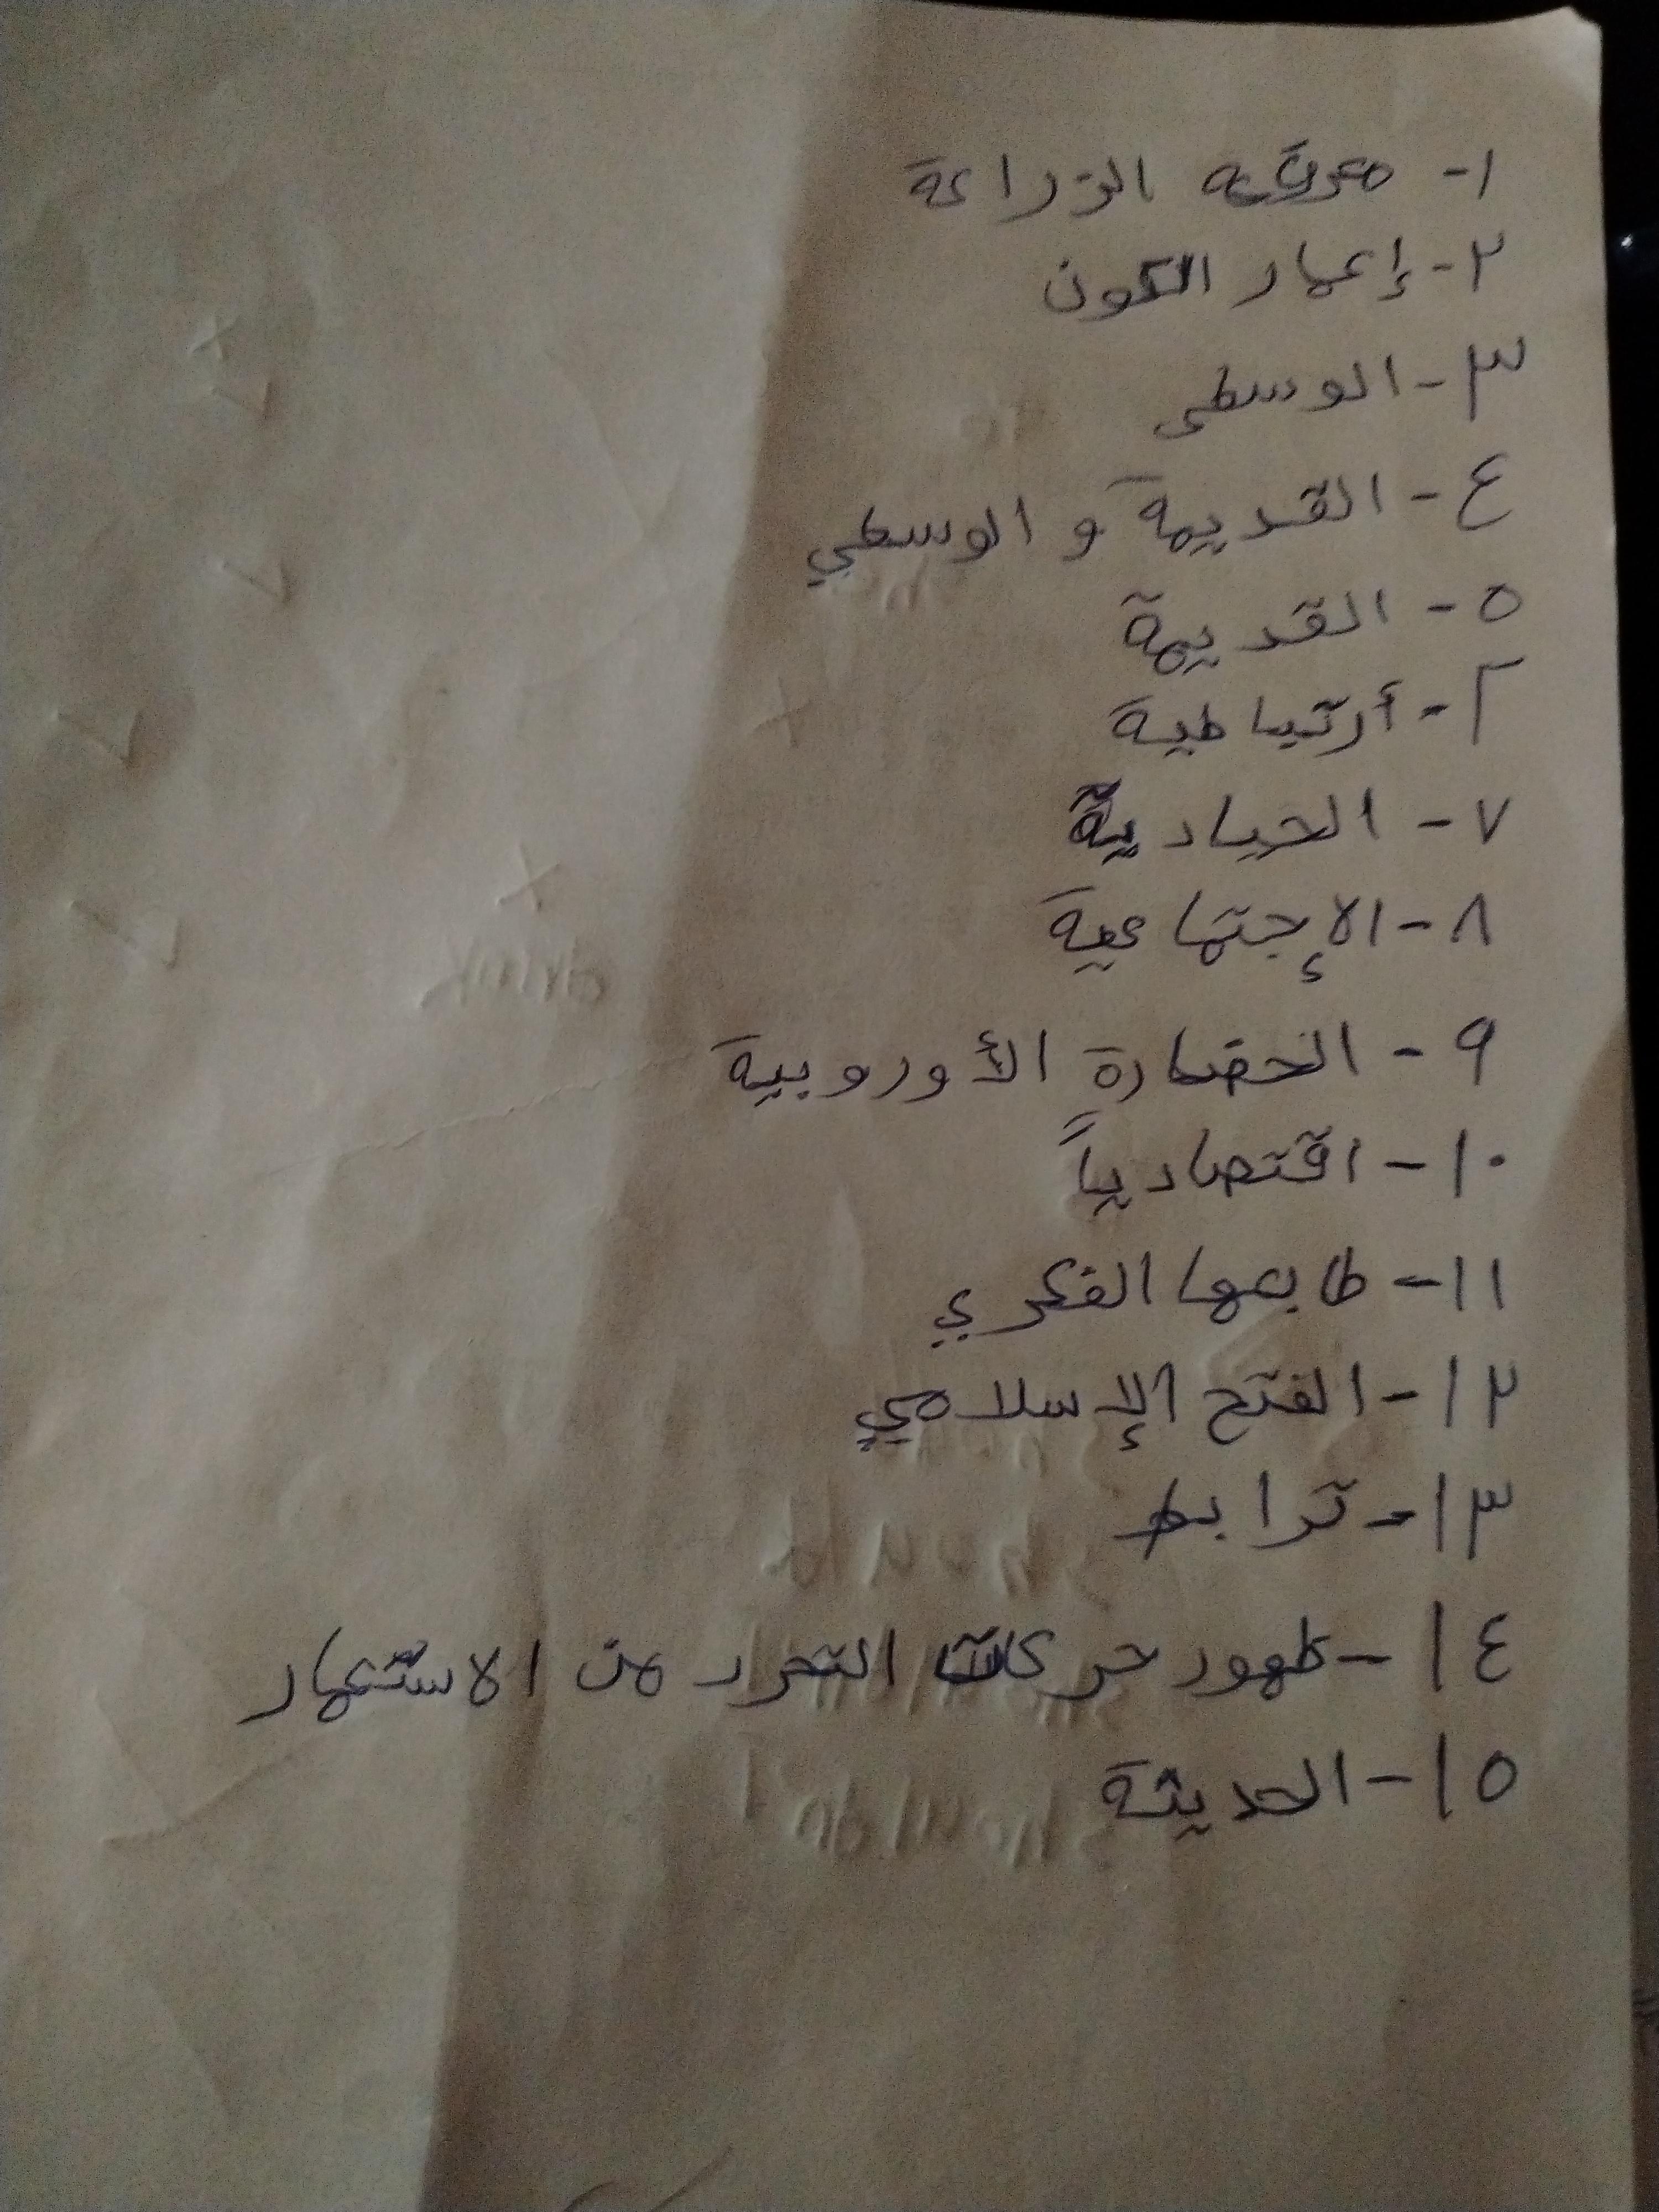 ١- معرفة الزراعة
٢- إعمار الكون
٣- الوسطى
٤- القديمة و الوسطي
٥- القديمة
٦- أرتباطية
٧- الحيادية
٨- الإجتماعية
٩- الحضارة الأوروبية
١٠- اقتصادياً
١١- طابعها الفكري
١٢- الفتح الإسلامي
١٣- ترابط
١٤- ظهور حركات التحرر من الاستعمار
١٥- الحديثة